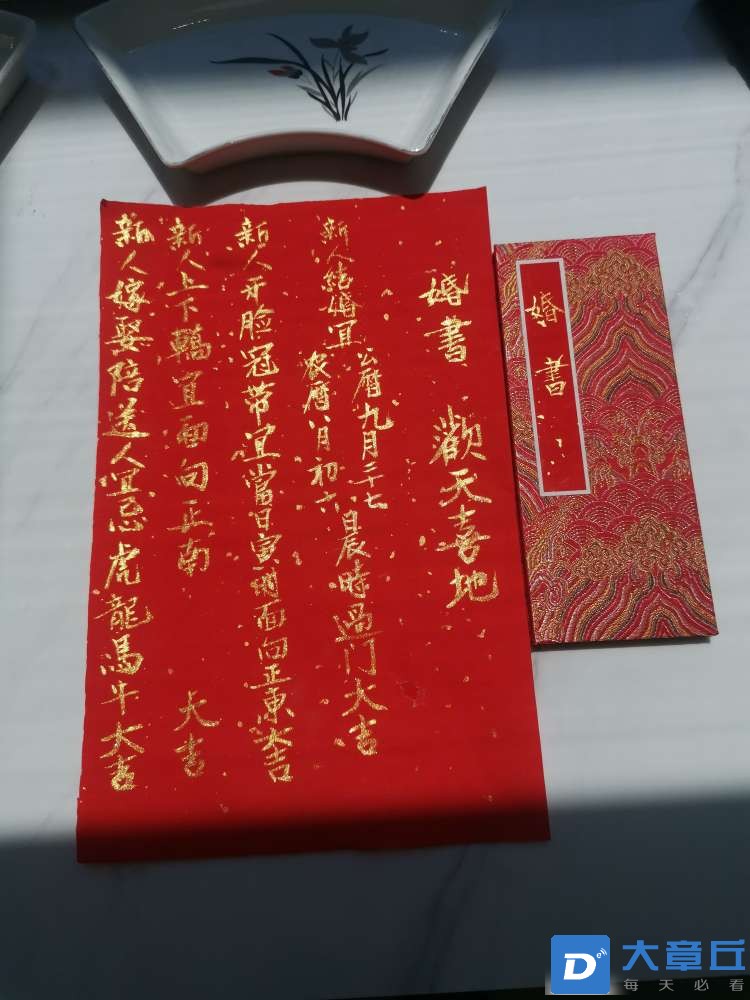 婚書 歡天喜地
新人結婚宜
公曆九月二十七
农曆八月初六
日辰時過门大吉
新人开脸冠带宜當日寅时面向正東大吉
新人上下轎宜面向正南 大吉
新人嫁娶陪送人宜忌虎龍馬牛大吉
婚書
大章丘
每天必看